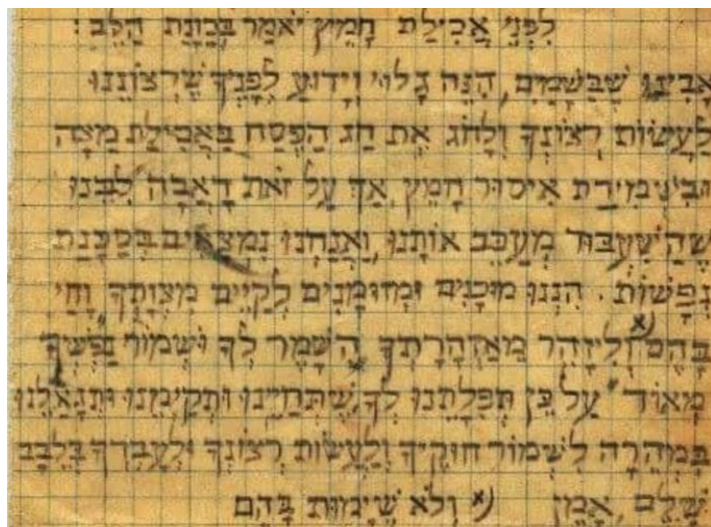 לִפְנֵי אֲכִילַת חָמֵץ יֹאמַר בְּכַוָּנַת הַלֵּב :
אָבִינוּ שֶׁבַּשָּׁמַיִם, הִנֵּה גָלוּי וְיָדוּעַ לְפָנֶיךָ שֶׁרְצוֹנֵנוּ
לַעֲשׂוֹת רְצוֹנְךָ וְלָחֹג אֶת חַג הַפֶּסַח בַּאֲכִילַת מַצָּה
וּבִשְׁמִירַת אִיסוּר חָמֵץ, אַךְ עַל זֹאת דָּאֲבָה לִבֵּנוּ
שֶׁהַשִּׁעְבּוּד מְעַכֵּב אוֹתָנוּ, וַאֲנַחְנוּ נִמְצָאִים בְּסַכָּנַת
נְפָשׁוֹת. הִנְנוּ מוּכָנִים וּמְזוּמָּנִים לְקַיֵּים מִצְוָתְךָ "וָחַי
בָּהֶם x) וְלִיזָּהֵר מֵאַזְהָרָתְךָ הִשָּׁמֶר לְךָ וּשְׁמוֹר נַפְשְׁךָ
מְאוֹד" עַל כֵּן תְּפִלָּתֵנוּ לְךָ, שֶׁתְּחַיֵּינוּ וּתְקַיְּמֵנוּ וְתִגְאָלֵנוּ
בִּמְהֵרָה לִשְׁמוֹר חוּקֶּיךָ וְלַעֲשׂוֹת רְצוֹנְךָ וּלְעָבְדְךָ בְּלֵבָב
שָׁלֵם, אָמֵן x) וְלֹא שֶׁיָּמוּת בָּהֶם